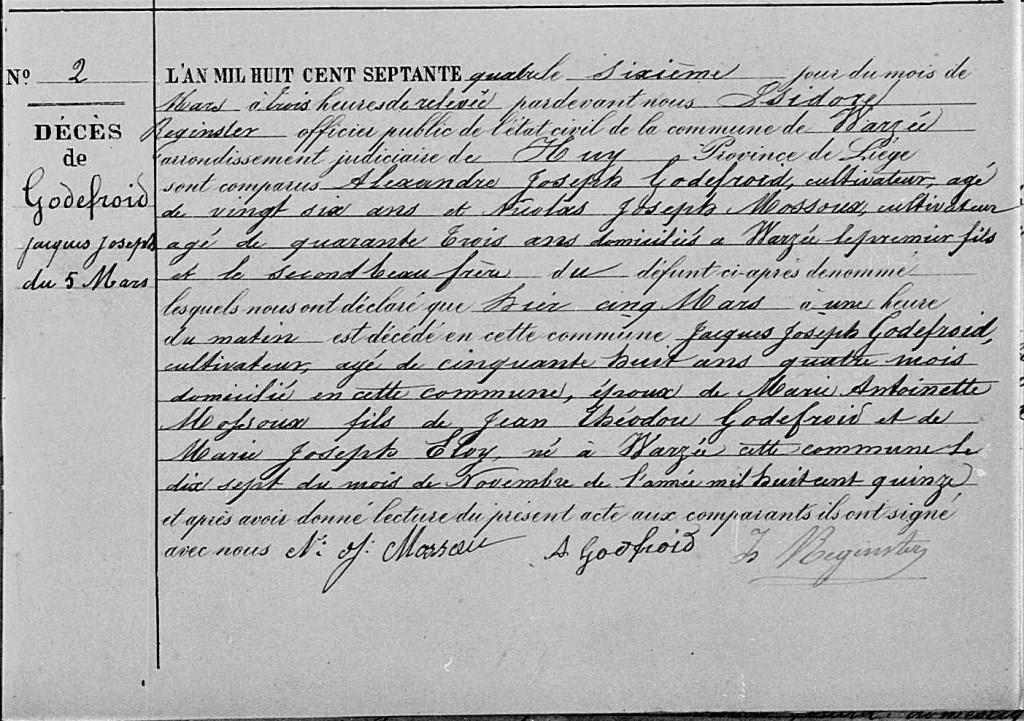 Nº 2
DÉCÈS
de
Godefroid
Jacques Joseph
du 5 Mars
L'AN MIL HUIT CENT SEPTANTE quatre le sixième jour du mois de
Mars à trois heures de relevée pardevant nous Isidore
Reginster officier public de l'état civil de la commune de Warzée
arrondissement judiciaire de Huy Province de Liége
sont comparus Alexandre Joseph Godefroid, cultivateur, agé
de vingt six ans et Nicolas Joseph Mossoux, cultivateur
agé de quarante trois ans domiciliés a Warzée le premier fils
et le second beau frère du défunt ci-après denommé
lesquels nous ont déclaré que hier cinq Mars à une heure
du matin est décédé en cette commune Jacques Joseph Godefroid,
cultivateur, agé de cinquante huit ans quatre mois
domicilié en cette commune, époux de Marie Antoinette
Mossoux fils de Jean Théodore Godefroid et de
Marie Joseph Eloy, né à Warzée cette commune le
dix sept du mois de Novembre de l'année mil huit cent quinze
et après avoir donné lecture du présent acte aux comparants ils ont signé
avec nous N. J. Mossoux A Godfroid Is Reginster